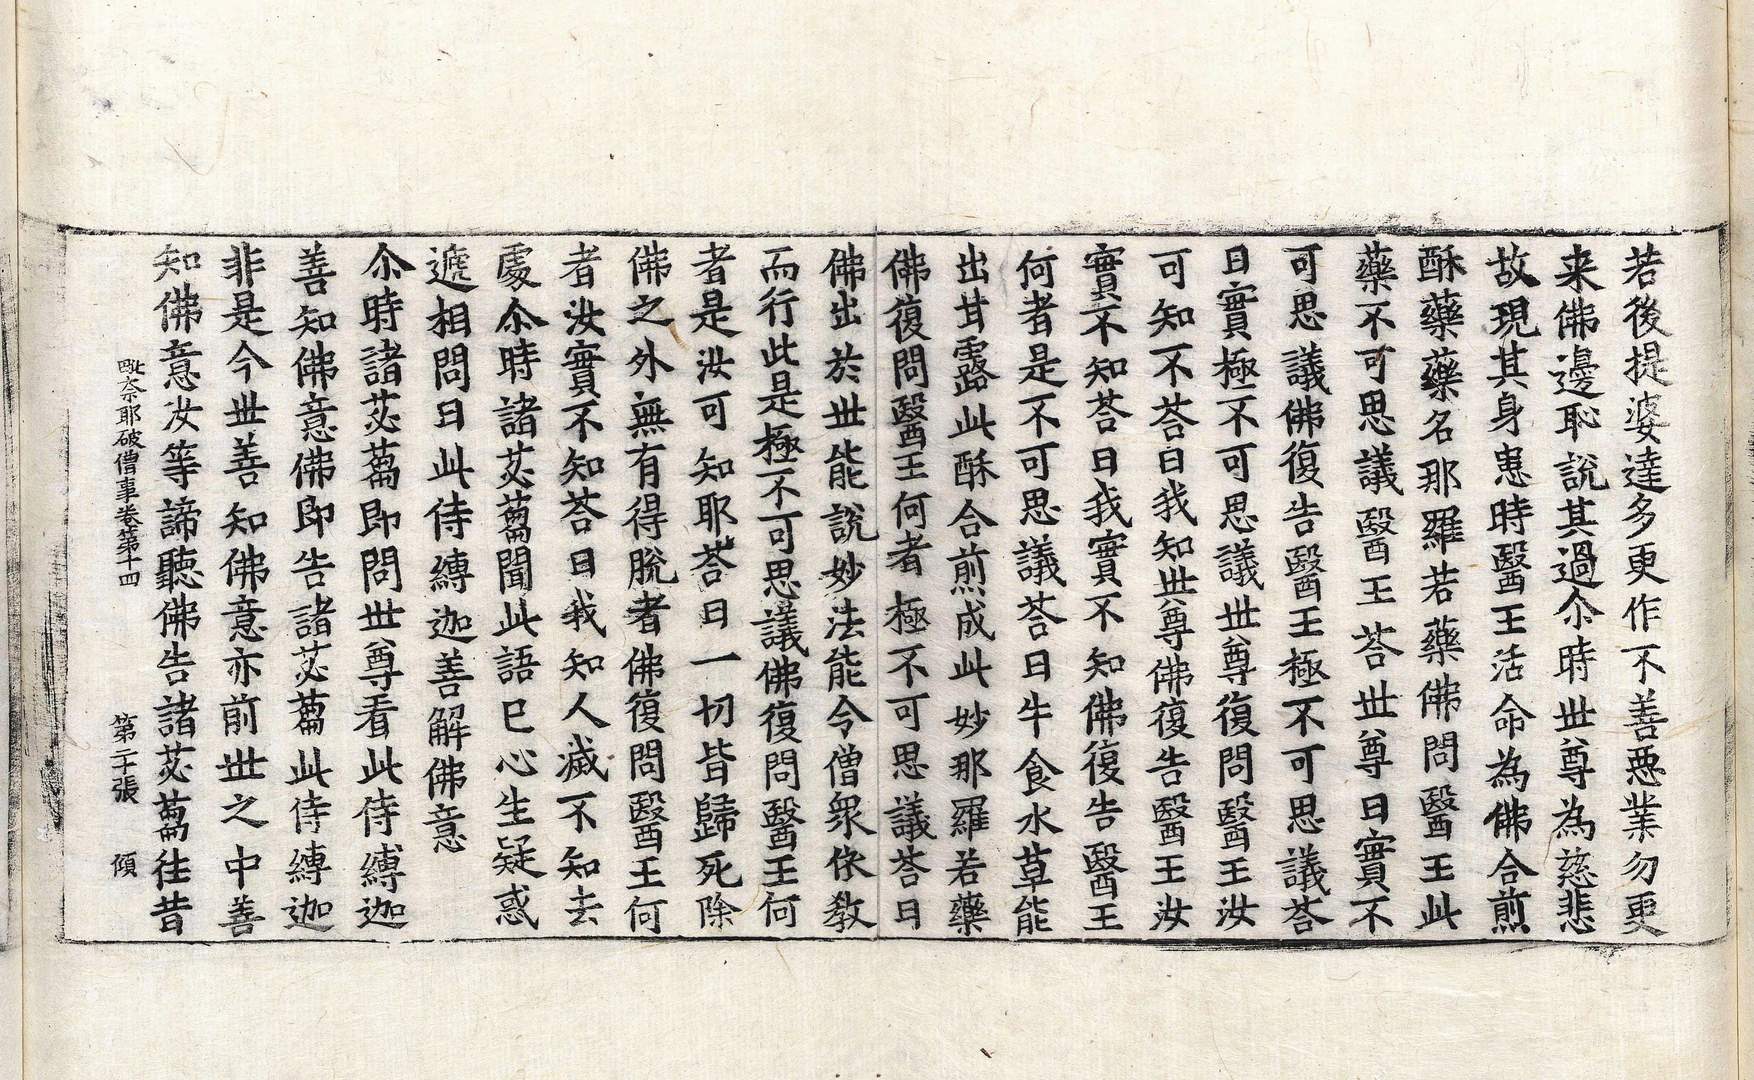 若後提婆達多更作不善惡業勿更
来佛邊恥說其過尒時世尊為慈悲
故現其身患時醫王活命為佛合煎
酥藥藥名那羅若藥佛問醫王此
藥不可思議醫王荅世尊曰實不
可思議佛復告醫王極不可思議荅
曰實極不可思議世尊復問醫王汝
可知不荅曰我知世尊佛復告醫王汝
實不知荅曰我實不知佛復告醫王
何者是不可思議荅曰牛食水草能
出甘露此酥合煎成此妙那羅若藥
佛復問醫王何者極不可思議荅曰
佛出於世能說妙法能令僧衆依教
而行此是極不可思議佛復問醫王何
者是汝可知耶荅曰一切皆歸死除
佛之外無有得脫者佛復問醫王何
者汝實不知荅曰我知人滅不知去
處尒時諸苾蒭聞此語已心生疑惑
遞相問曰此侍縛迦善解佛意
尒時諸苾蒭即問世尊看此侍縛迦
善知佛意佛即告諸苾蒭此侍縛迦
非是今世善知佛意亦前世之中善
知佛意汝等諦聽佛告諸苾蒭往昔
毗奈耶破僧事卷第十四　第二十張　傾